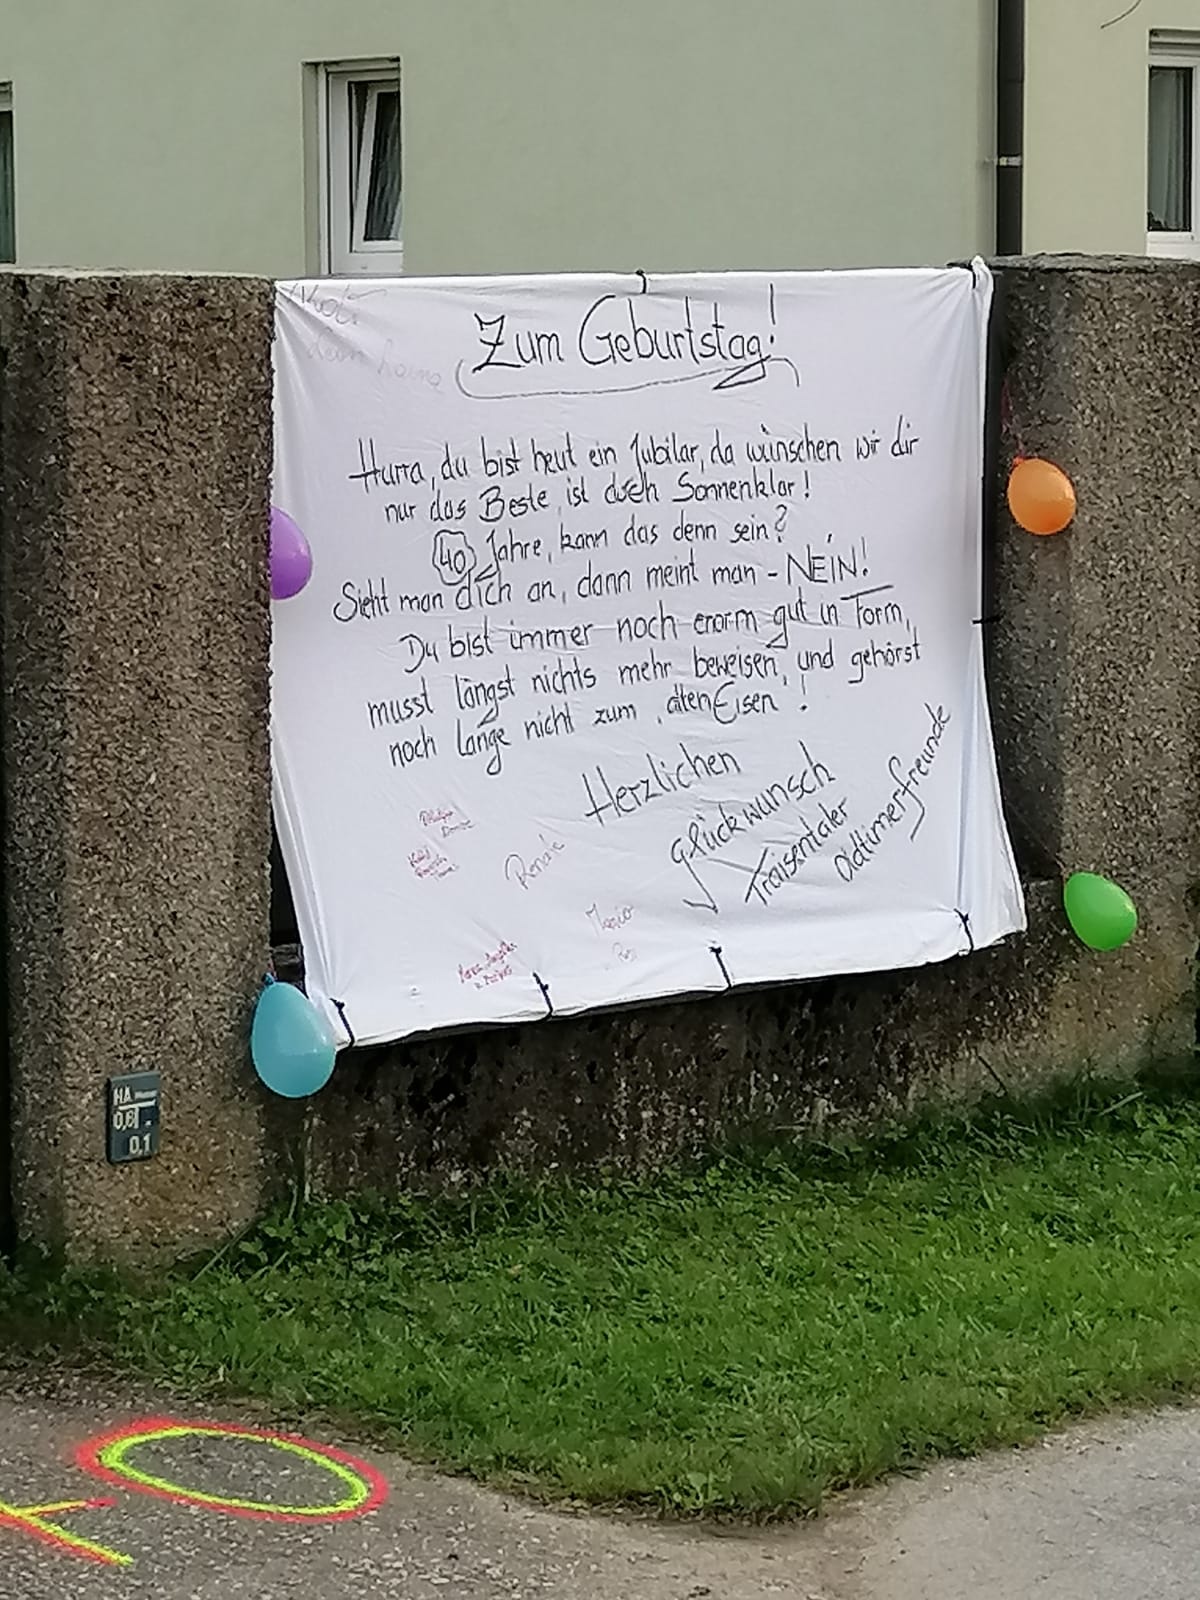 Zum Geburtstag!
Hurra, du bist heut ein Jubilar, da wünschen wir dir
nur das Beste, ist doch Sonnenklar!
40 Jahre, kann das denn sein?
Sieht man dich an, dann meint man - NEIN!
Du bist immer noch enorm gut in Form,
musst längst nichts mehr beweisen, und gehörst
noch lange nicht zum "alten Eisen"!
Herzlichen
Glückwunsch
Traisentaler
Oldtimerfreunde
Renate
Mario
HA
0,1